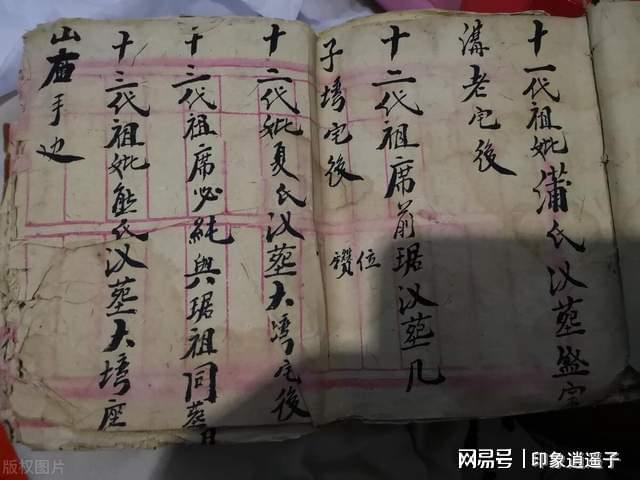 十一代祖妣蒲氏汉葬盛家
溝老宅後
十二代祖席前琚汉葬几
子塆宅後
讚位
十二代妣夏氏汉葬大塆宅後
十三代祖席必純與琚祖同葬
十三代祖妣熊氏汉葬大塆座
山庙手边
版权图片
网易号 | 印象逍遥子